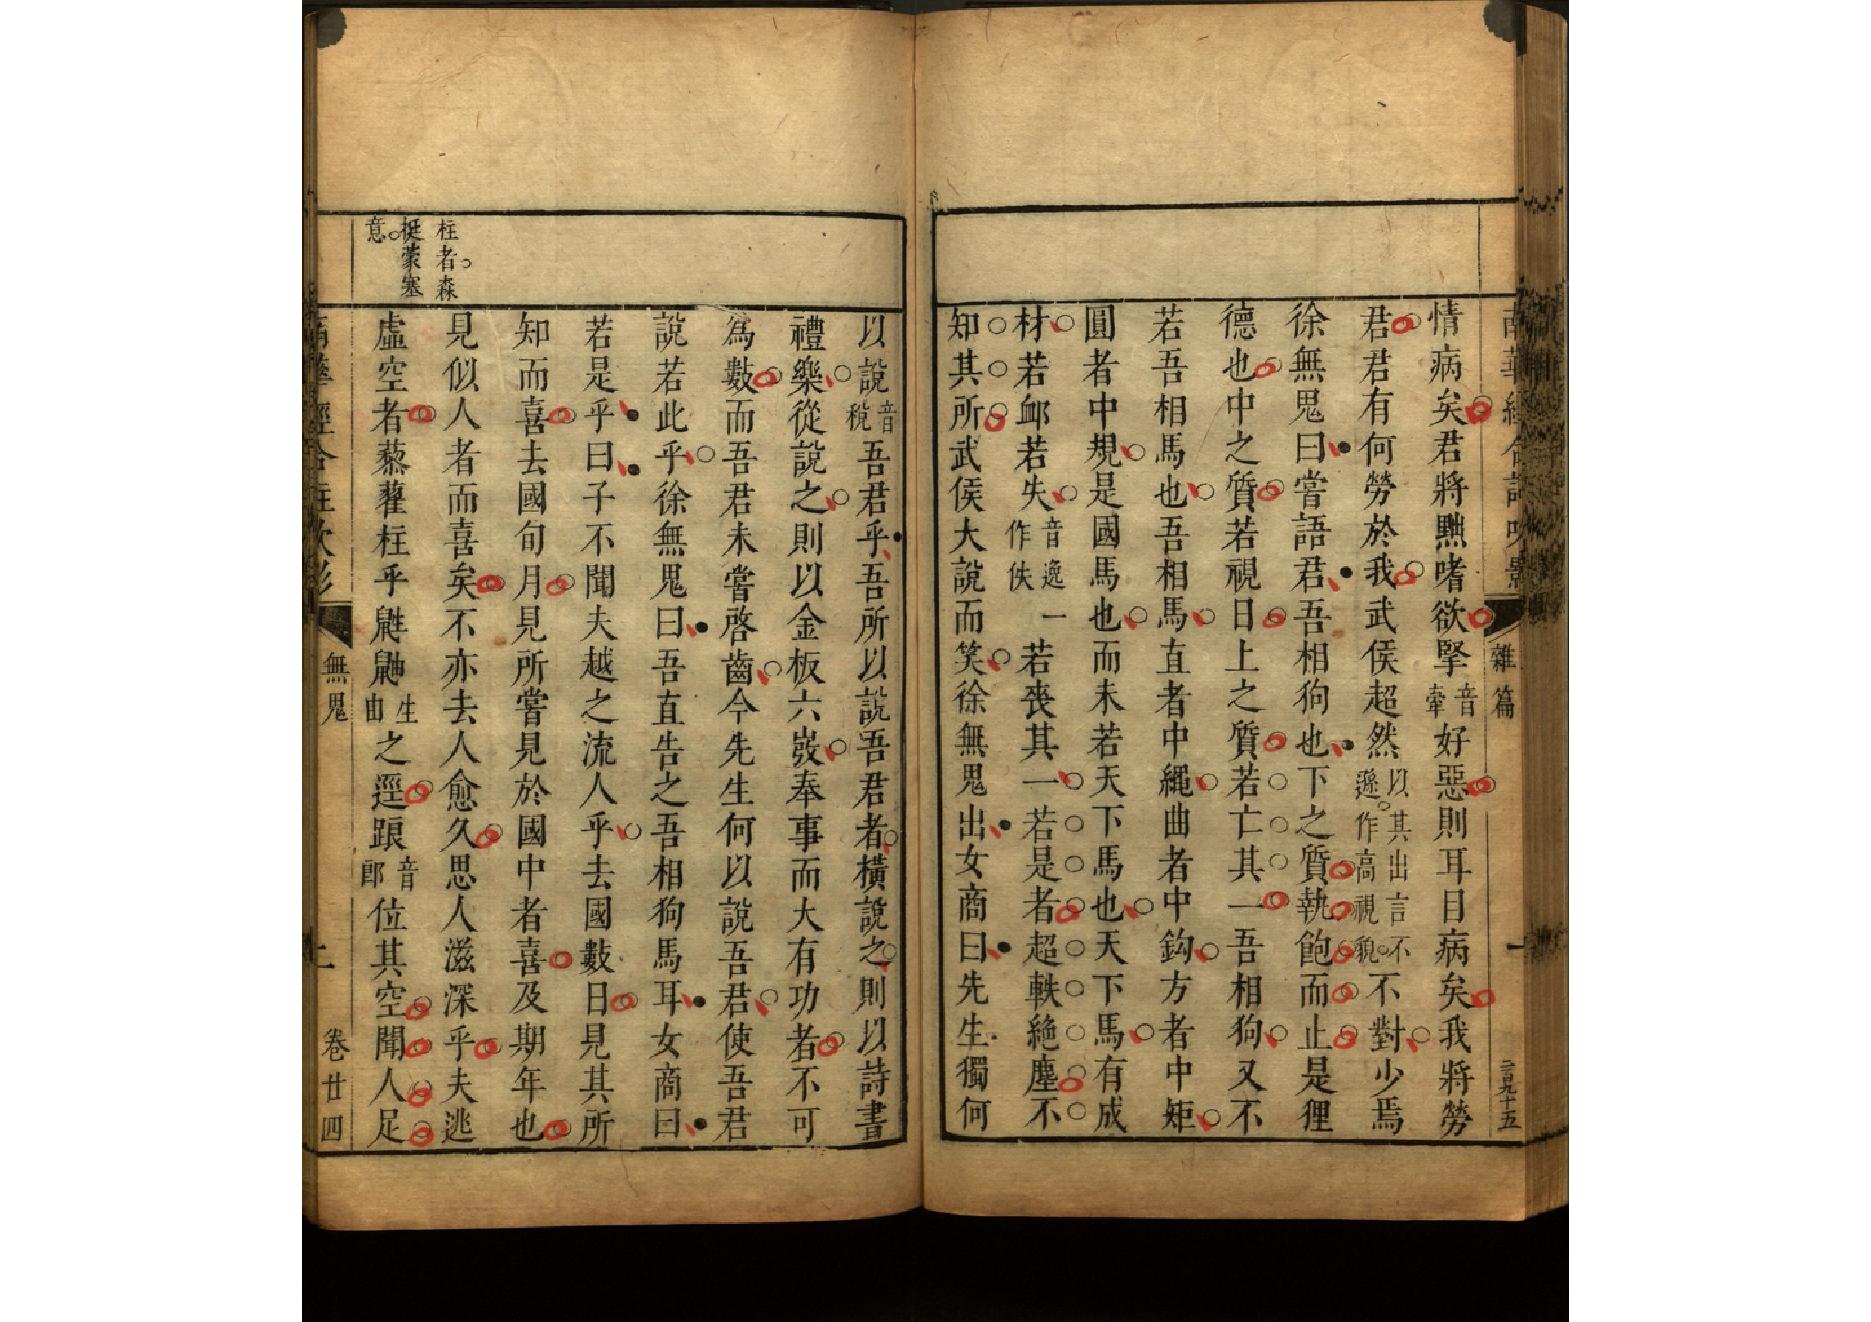 南華經合註吹影
雜篇
一
情病矣君將黜嗜欲掔音牽好惡則耳目病矣我將勞
君君有何勞於我武侯超然以其出言不遜作高視貌不對少焉
徐無鬼曰嘗語君吾相狗也下之質執飽而止是狸
德也中之質若視日上之質若亡其一吾相狗又不
若吾相馬也吾相馬直者中繩曲者中鈎方者中矩
圓者中規是國馬也而未若天下馬也天下馬有成
材若卹若失音逸作佚一若喪其一若是者超軼絕塵不
知其所武侯大說而笑徐無鬼出女商曰先生獨何
以說音稅吾君乎吾所以說吾君者橫說之則以詩書
禮樂從說之則以金板六弢奉事而大有功者不可
為數而吾君未嘗啓齒今先生何以說吾君使吾君
說若此乎徐無鬼曰吾直告之吾相狗馬耳女商曰
若是乎曰子不聞夫越之流人乎去國數日見其所
知而喜去國旬月見所嘗見於國中者喜及期年也
見似人者而喜矣不亦去人愈久思人滋深乎夫逃
虛空者藜藋柱乎鼪鼬生由之逕踉音郎位其空聞人足
柱者森
挺蒙塞
意
無鬼
卷廿四